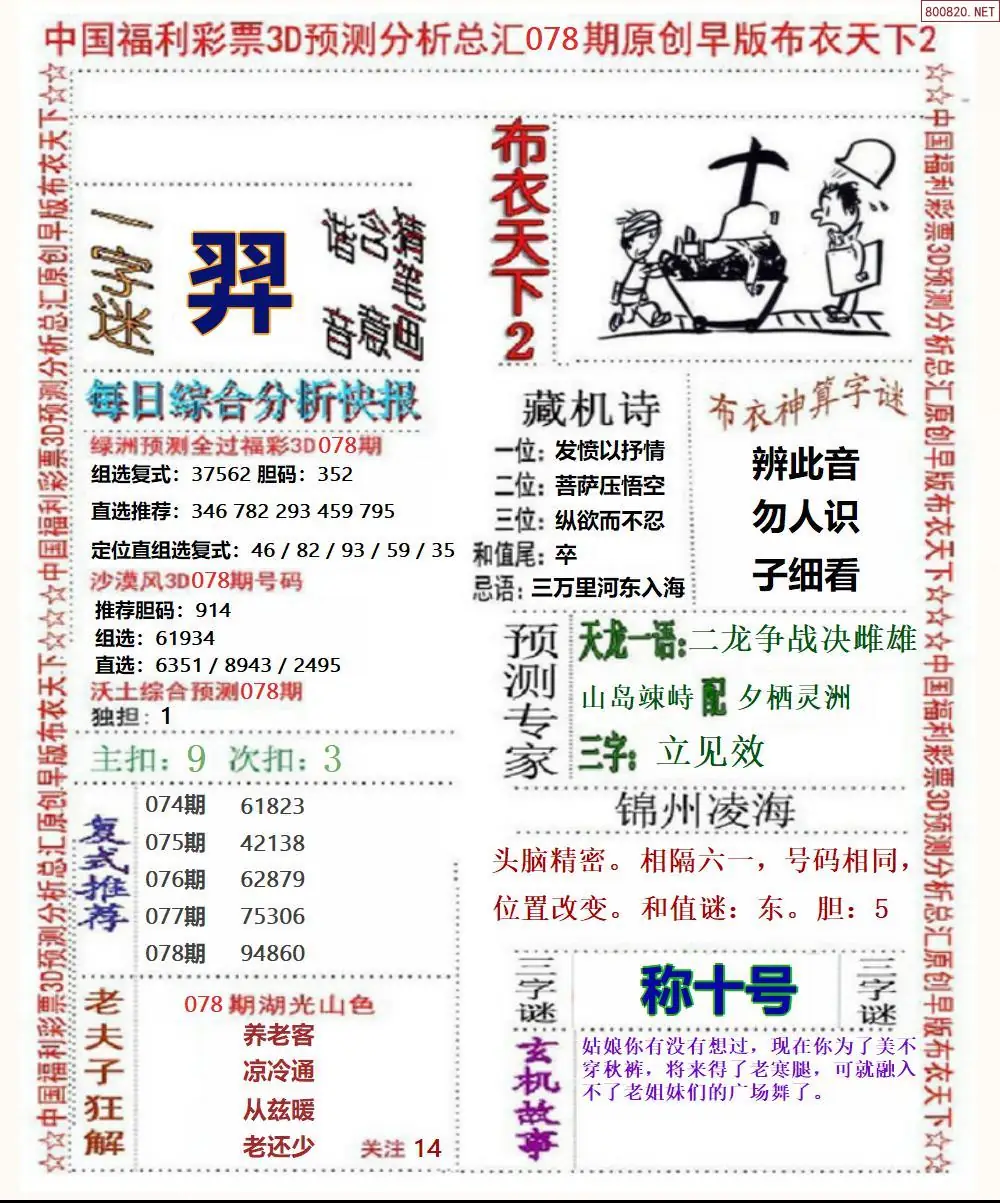 800820.NET
中国福利彩票3D预测分析总汇078期原创早版布衣天下2
中国福利彩票3D预测分析总汇原创早版布衣天下
中国福利彩票3D预测分析总汇原创早版布衣天下
一字迷
羿
猜笔画
含意
谐音
布衣天下2
每日综合分析快报
绿洲预测全过福彩3D078期
组选复式：37562 胆码：352
直选推荐：346 782 293 459 795
定位直组选复式：46 / 82 / 93 / 59 / 35
沙漠风3D078期号码
推荐胆码：914
组选：61934
直选：6351 / 8943 / 2495
沃土综合预测078期
独担：1
主扣：9 次扣：3
复式推荐
074期 61823
075期 42138
076期 62879
077期 75306
078期 94860
老夫子狂解
078期湖光山色
养老客
凉冷通
从兹暖
老还少
关注 14
藏机诗
一位：发愤以抒情
二位：菩萨压悟空
三位：纵欲而不忍
和值尾：卒
忌语：三万里河东入海
布衣神算字谜
辨此音
勿人识
子细看
预测专家
天龙一语：二龙争战决雌雄
山岛竦峙 配 夕栖灵洲
三字：立见效
锦州凌海
头脑精密。相隔六一，号码相同，
位置改变。和值谜：东。胆：5
三字谜
称十号
三字谜
玄机故事
姑娘你有没有想过，现在你为了美不
穿秋裤，将来得了老寒腿，可就融入
不了老姐妹们的广场舞了。